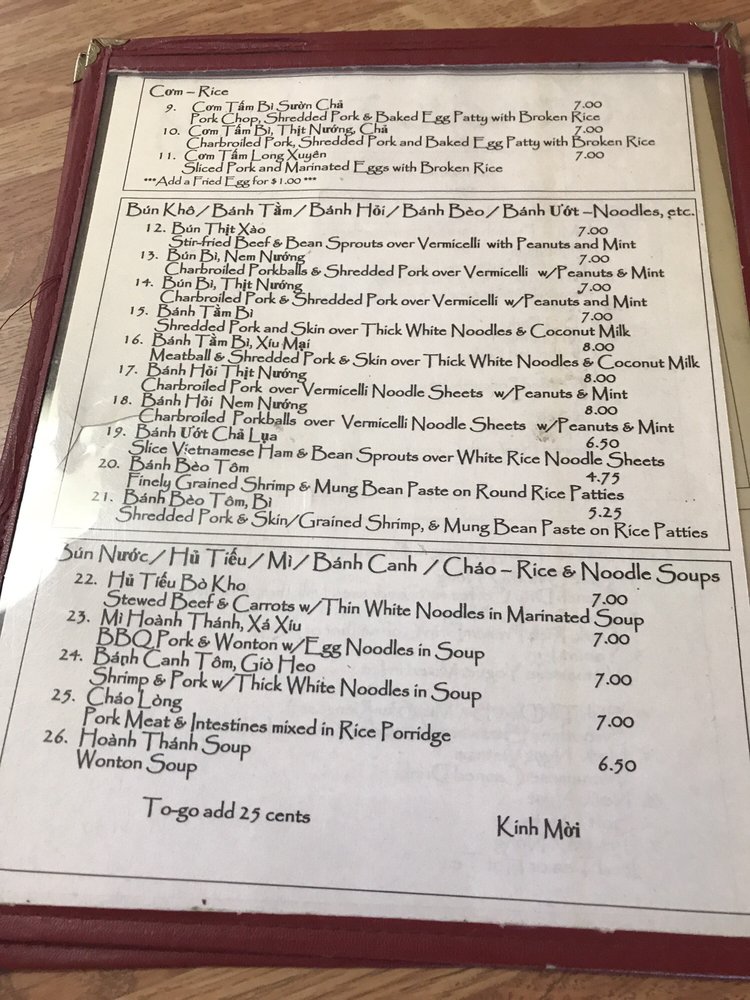 Cơm – Rice
9. Cơm Tấm Bì Sườn Chả 7.00
Pork Chop, Shredded Pork & Baked Egg Patty with Broken Rice
10. Cơm Tấm Bì, Thịt Nướng, Chả 7.00
Charbroiled Pork, Shredded Pork and Baked Egg Patty with Broken Rice
11. Cơm Tấm Long Xuyên 7.00
Sliced Pork and Marinated Eggs with Broken Rice
***Add a Fried Egg for $1.00 ***
Bún Khô / Bánh Tằm / Bánh Hỏi / Bánh Bèo / Bánh Ướt –Noodles, etc.
12. Bún Thịt Xào 7.00
Stir-fried Beef & Bean Sprouts over Vermicelli with Peanuts and Mint
13. Bún Bì, Nem Nướng 7.00
Charbroiled Porkballs & Shredded Pork over Vermicelli w/Peanuts & Mint
14. Bún Bì, Thịt Nướng 7.00
Charbroiled Pork & Shredded Pork over Vermicelli w/Peanuts and Mint
15. Bánh Tằm Bì 7.00
Shredded Pork and Skin over Thick White Noodles & Coconut Milk
16. Bánh Tằm Bì, Xíu Mại 8.00
Meatball & Shredded Pork & Skin over Thick White Noodles & Coconut Milk
17. Bánh Hỏi Thịt Nướng 8.00
Charbroiled Pork over Vermicelli Noodle Sheets w/Peanuts & Mint
18. Bánh Hỏi Nem Nướng 8.00
Charbroiled Porkballs over Vermicelli Noodle Sheets w/Peanuts & Mint
19. Bánh Ướt Chả Lụa 6.50
Slice Vietnamese Ham & Bean Sprouts over White Rice Noodle Sheets
20. Bánh Bèo Tôm 4.75
Finely Grained Shrimp & Mung Bean Paste on Round Rice Patties
21. Bánh Bèo Tôm, Bì 5.25
Shredded Pork & Skin/Grained Shrimp, & Mung Bean Paste on Rice Patties
Bún Nước / Hủ Tiếu / Mì / Bánh Canh / Cháo – Rice & Noodle Soups
22. Hủ Tiếu Bò Kho 7.00
Stewed Beef & Carrots w/Thin White Noodles in Marinated Soup
23. Mì Hoành Thánh, Xá Xíu 7.00
BBQ Pork & Wonton w/Egg Noodles in Soup
24. Bánh Canh Tôm, Giò Heo 7.00
Shrimp & Pork w/Thick White Noodles in Soup
25. Cháo Lòng 7.00
Pork Meat & Intestines mixed in Rice Porridge
26. Hoành Thánh Soup 6.50
Wonton Soup
To-go add 25 cents
Kính Mời